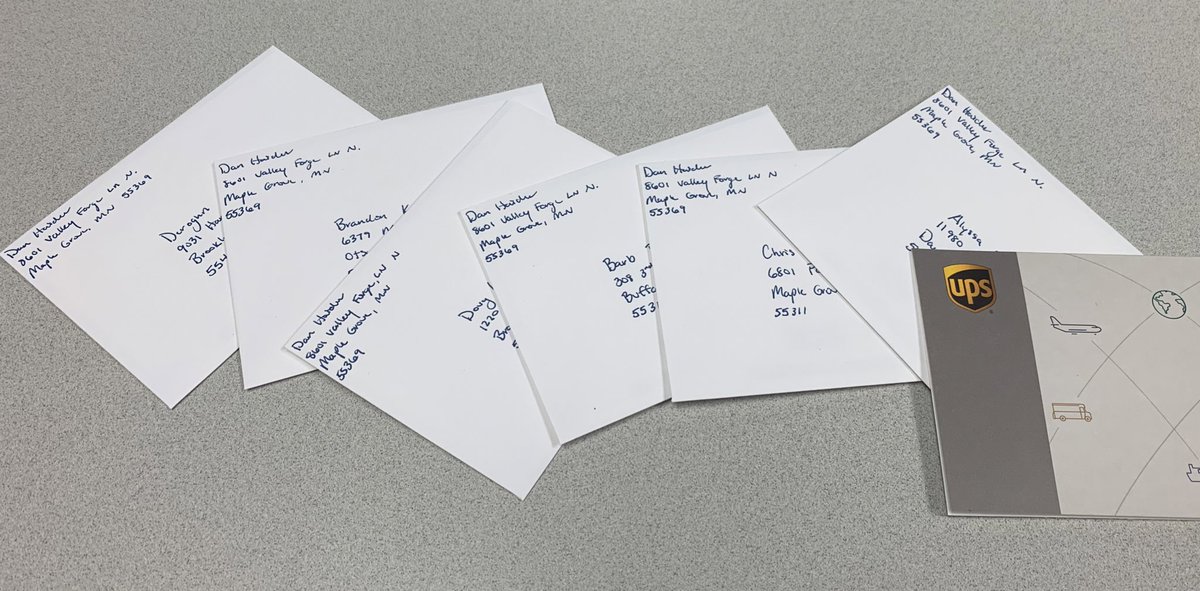 Dan Harder
8601 Valley Forge Ln N.
Maple
Grove, MN 55369
9031
Dan Harder
8601 Valley Forge Ln N.
Maple Grove, MN
55369
Brandon
6379
Dan Harder
8601 Valley Forge Ln N
Maple Grove, MN
55369
Doug
1220
Dan Harder
8601 Valley Forge Ln N.
Maple Grove, MN
55369
Barb
308
Dan Harder
8601 Valley Forge Ln N
Maple Grove, MN
55369
Chris
6801
Maple
55311
Dan Harder
8601 Valley Forge Ln N.
Maple Grove, MN
55369
Alyssa
11980
ups